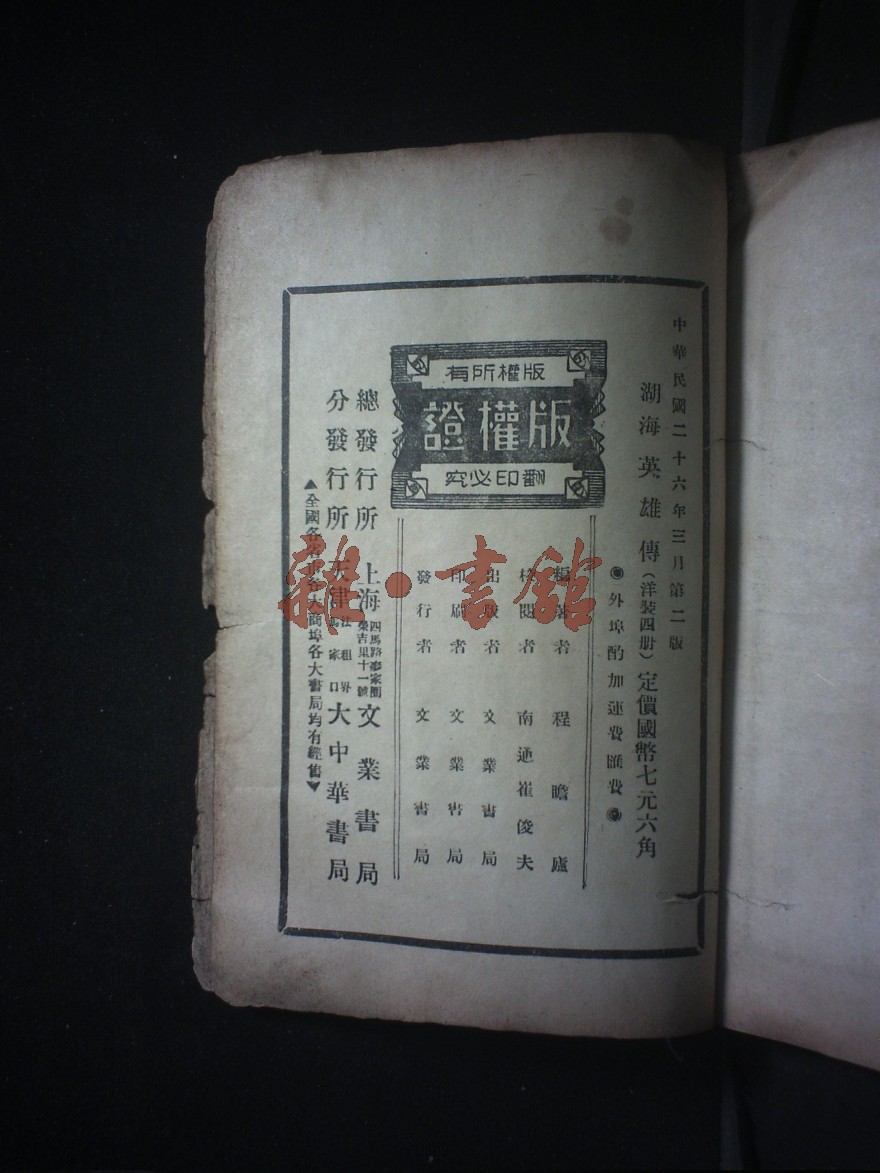 中華民國二十六年三月第二版
湖海英雄傳(洋裝四册)定價國幣七元六角
外埠酌加運費匯費
版權所有
版權證
翻印必究
編著者 程瞻廬
校閱者 南通崔俊夫
出版者 文業書局
印刷者 文業書局
發行者 文業書局
總發行所 上海四馬路 榮吉里十一號 文業書局
分發行所 天津法租界 大中華書局
▲全國各省市各大商埠各大書局均有經售▼
雜·書館